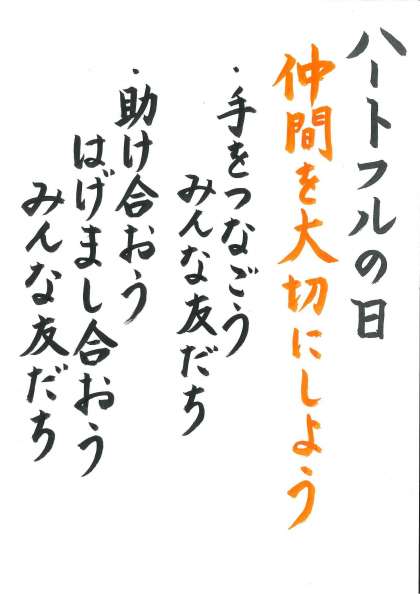 ハートフルの日
仲間を大切にしよう
・手をつなごう
みんな友だち
・助け合おう
はげまし合おう
みんな友だち